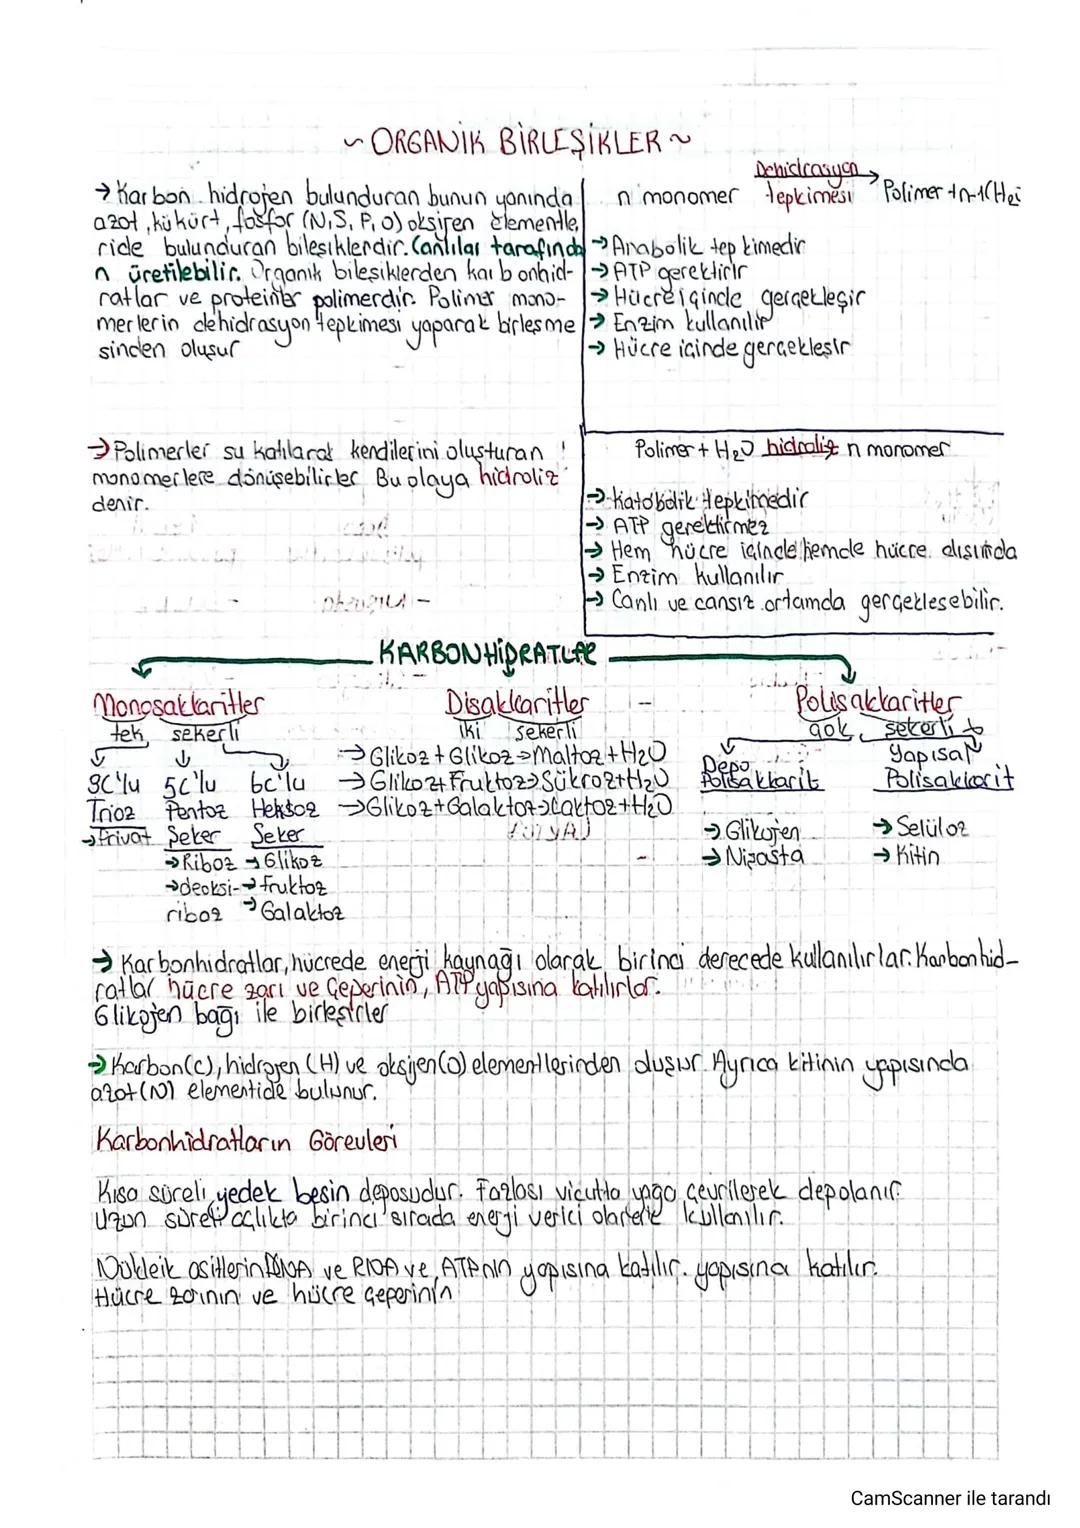 ~ ORGANİK BİRLEŞİKLER ~
→ Karbon hidrojen bulunduran bunun yanında
azot, kükürt, fosfor (N,S, P, O) oksijen elementle,
ride bulunduran bileşiklerdir. Canlılar tarafında
n üretilebilir. Organik bileşiklerden karbonhid-
ratlar ve proteinler polimerdir. Polimer mono-
merlerin dehidrasyon tepkimesi yaparak birleşme
sinden oluşur
n monomer Dehidrasyon tepkimesi → Polimer + n-1(H₂
→ Anabolik tepkimedir
→ ATP gerektirir
→ Hücre içinde gerçekleşir
→ Enzim kullanılır
→ Hücre içinde gerçekleşir
→ Polimerler su katılarak kendilerini oluşturan
monomerlere dönüşebilirler Bu olaya hidroliz
denir.
Polimer + H₂O hidroliz n monomer
→ Katobolik tepkimedir
→ ATP gerektirmez
→ Hem hücre içinde hemde hücre dışında
→ Enzim kullanılır
→ Canlı ve cansız ortamda gerçekleşebilir.
KARBONHİDRATLAR
Monosakkaritler
tek şekerli
3C'lu 5C'lu 6C'lu
Trioz Pentoz Heksoz
→ Privat Şeker Şeker
→ Riboz → Glikoz
→ deoksi- → Fruktoz
riboz → Galaktoz
Disakkaritler
iki şekerli
→ Glikoz + Glikoz → Maltoz + H₂O
→ Glikoz + Fruktoz → Sükroz + H₂O
→ Glikoz + Galaktoz → Laktoz + H₂O
Polisakkaritler
çok şekerli
Depo Polisakkarit
→ Glikojen
→ Nişasta
Yapısal
Polisakkarit
→ Selüloz
→ Kitin
→ Karbonhidratlar, hücrede enerji kaynağı olarak birinci derecede kullanılırlar. Karbonhid-
ratlar hücre zarı ve Çeperinin, ATP yapısına katılırlar.
Glikojen bağı ile birleşirler
→ Karbon(c), hidrojen (H) ve oksijen(o) elementlerinden oluşur. Ayrıca kitinin yapısında
azot (N) elementide bulunur.
Karbonhidratların Görevleri
Kısa süreli yedek besin deposudur. Fazlası vücutta yağa çevrilerek depolanır.
Uzun süreli açlıkta birinci sırada enerji verici olarak kullanılır.
Nükleik asitlerin DNA ve RNA ve ATPnin yapısına katılır. yapısına katılır.
Hücre zarının ve hücre çeperinin
CamScanner ile tarandı